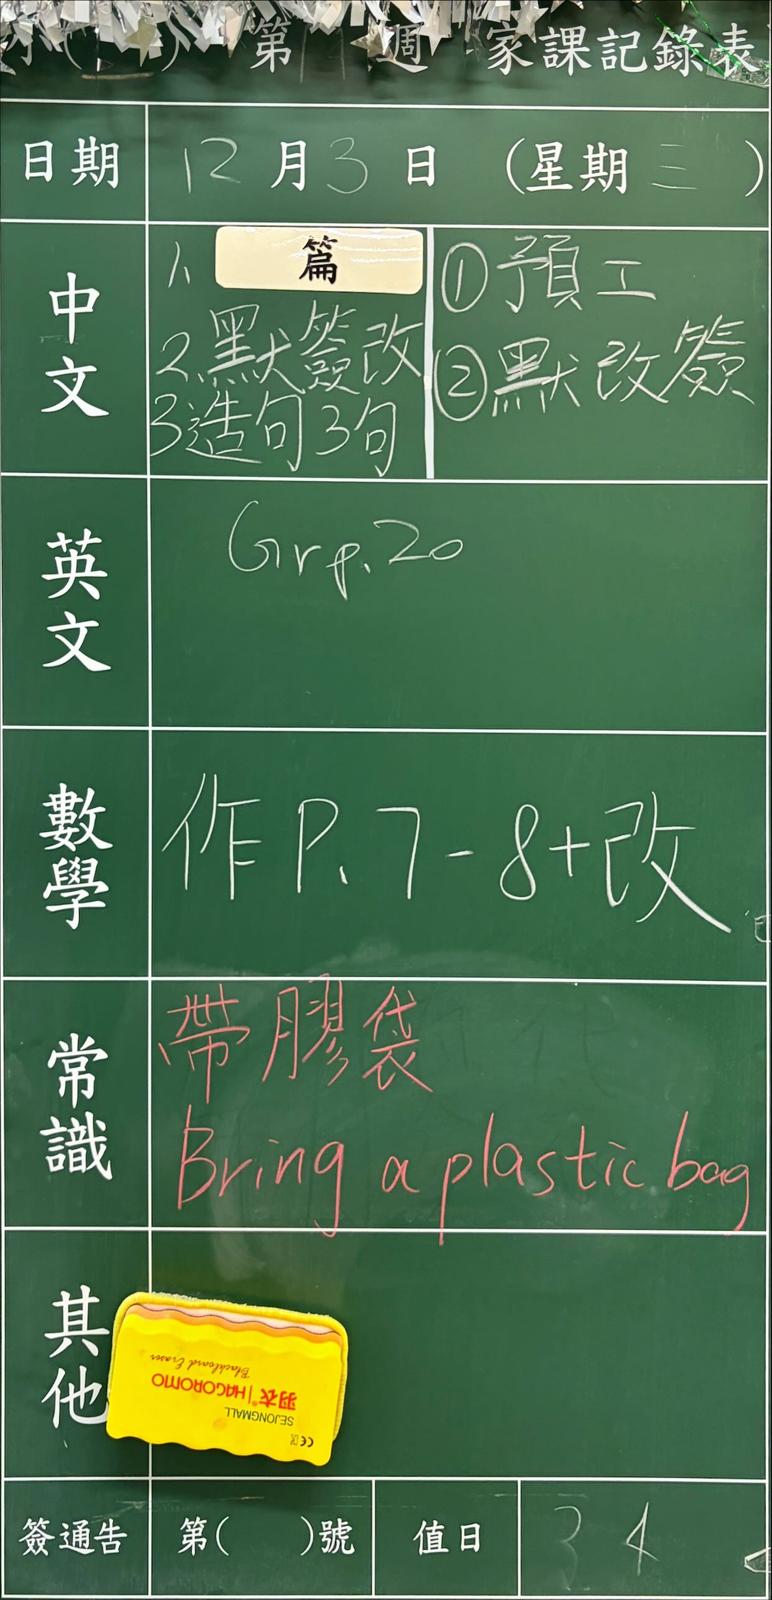 第 週 家課記錄表
日期 12月3日 (星期三)
中文
1. 篇
2.默簽改
3造句3句
①預工
②默改簽
英文
Gr p.20
數學
作 P.7-8+改
常識
帶膠袋
Bring a plastic bag
其他
Blackboard Eraser
羽衣 | HAGOROMO
SEJONGMALL
CE
簽通告 第( )號 值日 3 4